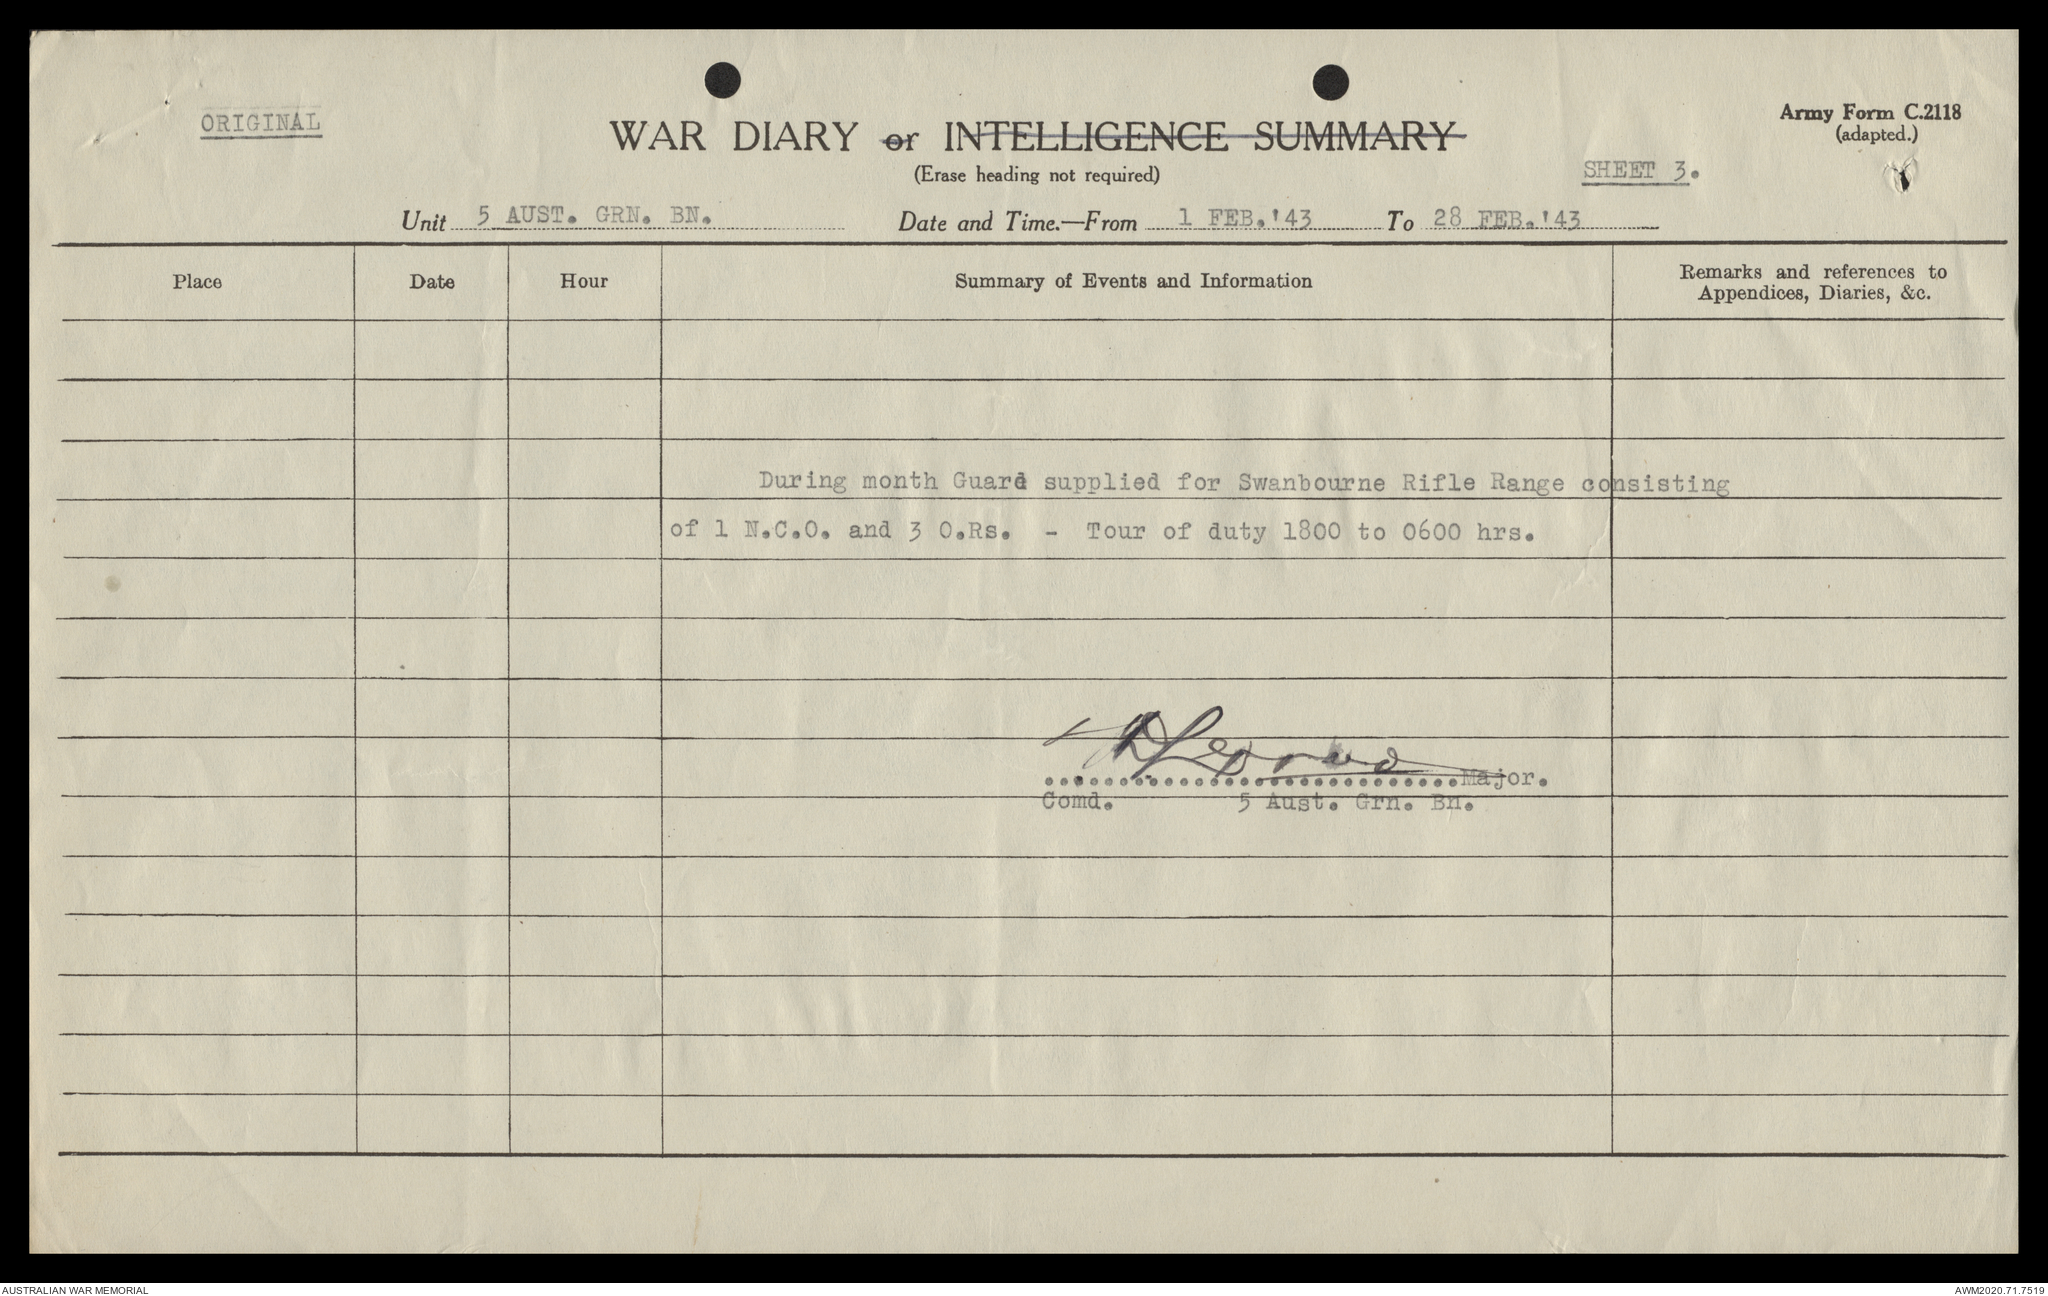 ORIGINAL
Army Form C.2118
(adapted.)
WAR DIARY or INTELLIGENCE SUMMARY
(Erase heading not required)
SHEET 3.
Unit 5 AUST. GRN. BN. Date and Time.—From 1 FEB.'43 To 28 FEB.'43
Place Date Hour Summary of Events and Information Remarks and references to
Appendices, Diaries, &c.
During month Guard supplied for Swanbourne Rifle Range consisting
of 1 N.C.O. and 3 O.Rs. - Tour of duty 1800 to 0600 hrs.
Major.
Comd. 5 Aust. Grn. Bn.
AUSTRALIAN WAR MEMORIAL
AWM2020.71.7519